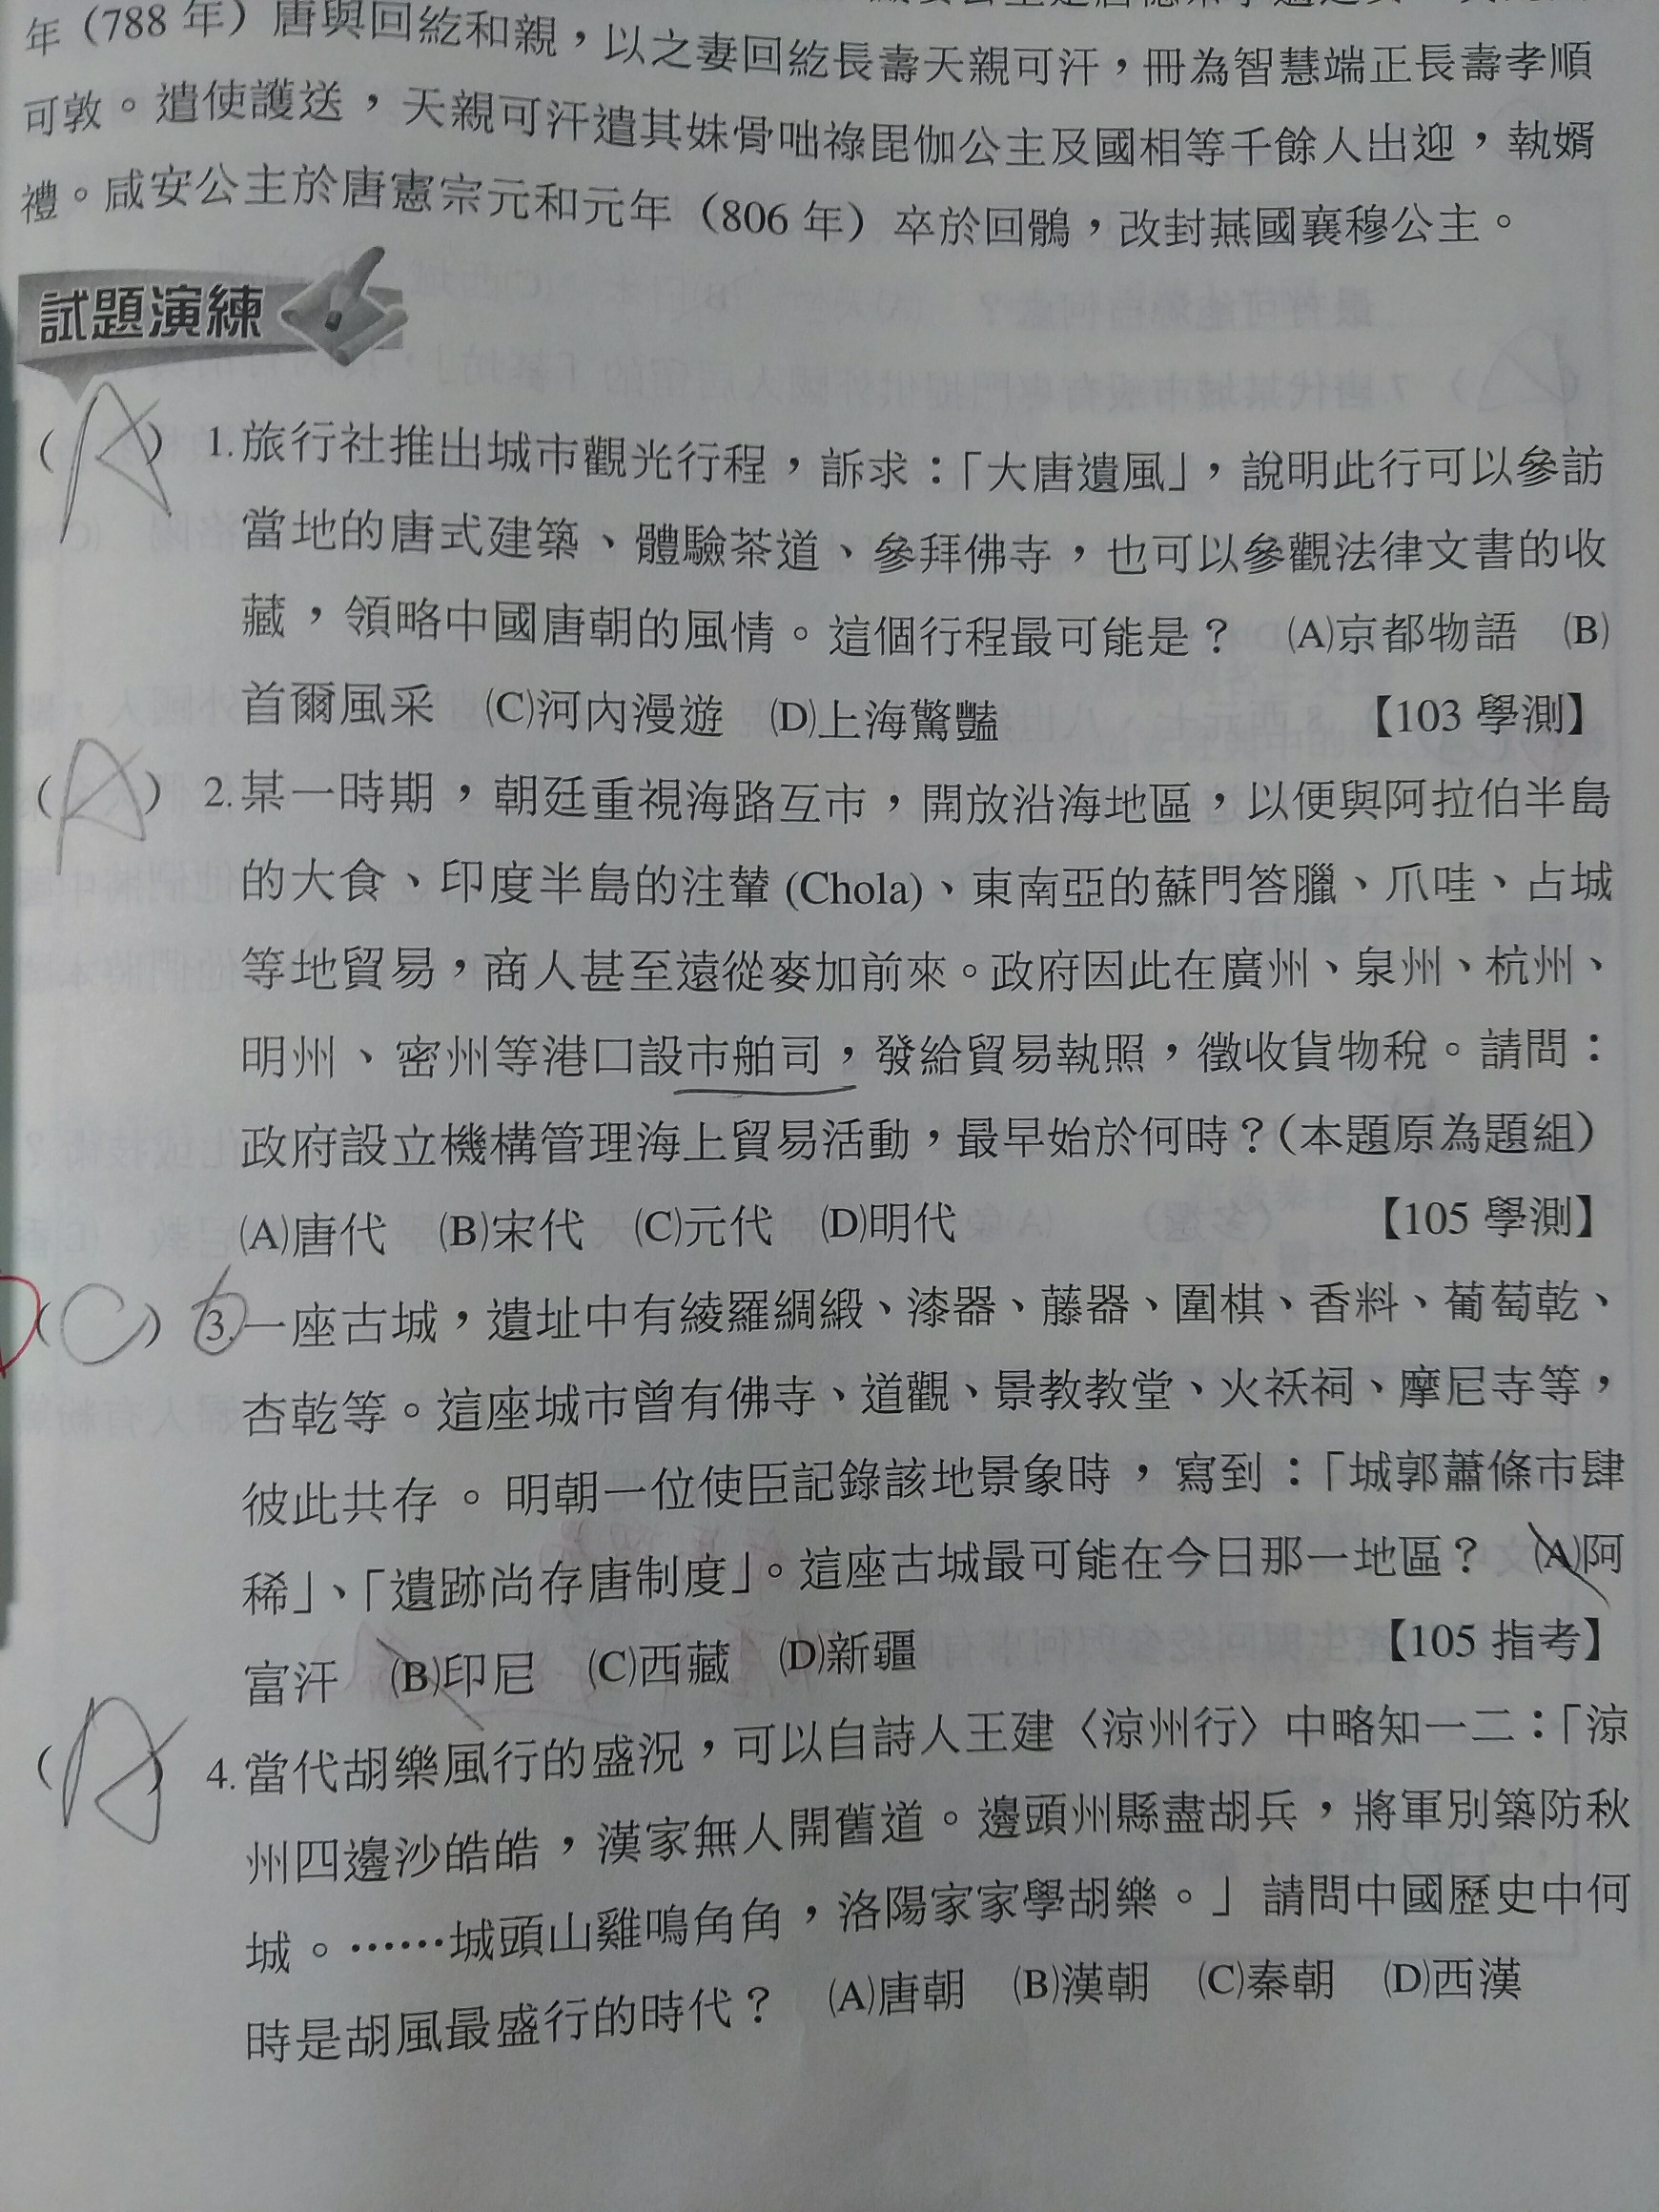 年（788 年）唐與回紇和親，以之妻回紇長壽天親可汗，冊為智慧端正長壽孝順
可敦。遣使護送，天親可汗遣其妹骨咄祿毘伽公主及國相等千餘人出迎，執婿
禮。咸安公主於唐憲宗元和元年（806 年）卒於回鶻，改封燕國襄穆公主。
試題演練
（A）1.旅行社推出城市觀光行程，訴求：「大唐遺風」，說明此行可以參訪
當地的唐式建築、體驗茶道、參拜佛寺，也可以參觀法律文書的收
藏，領略中國唐朝的風情。這個行程最可能是？ (A)京都物語 (B)
首爾風采 (C)河內漫遊 (D)上海驚豔 【103 學測】
（A）2.某一時期，朝廷重視海路互市，開放沿海地區，以便與阿拉伯半島
的大食、印度半島的注輦 (Chola)、東南亞的蘇門答臘、爪哇、占城
等地貿易，商人甚至遠從麥加前來。政府因此在廣州、泉州、杭州、
明州、密州等港口設市舶司，發給貿易執照，徵收貨物稅。請問：
政府設立機構管理海上貿易活動，最早始於何時？（本題原為題組）
(A)唐代 (B)宋代 (C)元代 (D)明代 【105 學測】
（C）3.一座古城，遺址中有綾羅綢緞、漆器、藤器、圍棋、香料、葡萄乾、
杏乾等。這座城市曾有佛寺、道觀、景教教堂、火祆祠、摩尼寺等，
彼此共存。明朝一位使臣記錄該地景象時，寫到：「城郭蕭條市肆
稀」、「遺跡尚存唐制度」。這座古城最可能在今日那一地區？ (A)阿
富汗 (B)印尼 (C)西藏 (D)新疆 【105 指考】
（A）4.當代胡樂風行的盛況，可以自詩人王建〈涼州行〉中略知一二：「涼
州四邊沙皓皓，漢家無人開舊道。邊頭州縣盡胡兵，將軍別築防秋
城。……城頭山雞鳴角角，洛陽家家學胡樂。」請問中國歷史中何
時是胡風最盛行的時代？ (A)唐朝 (B)漢朝 (C)秦朝 (D)西漢